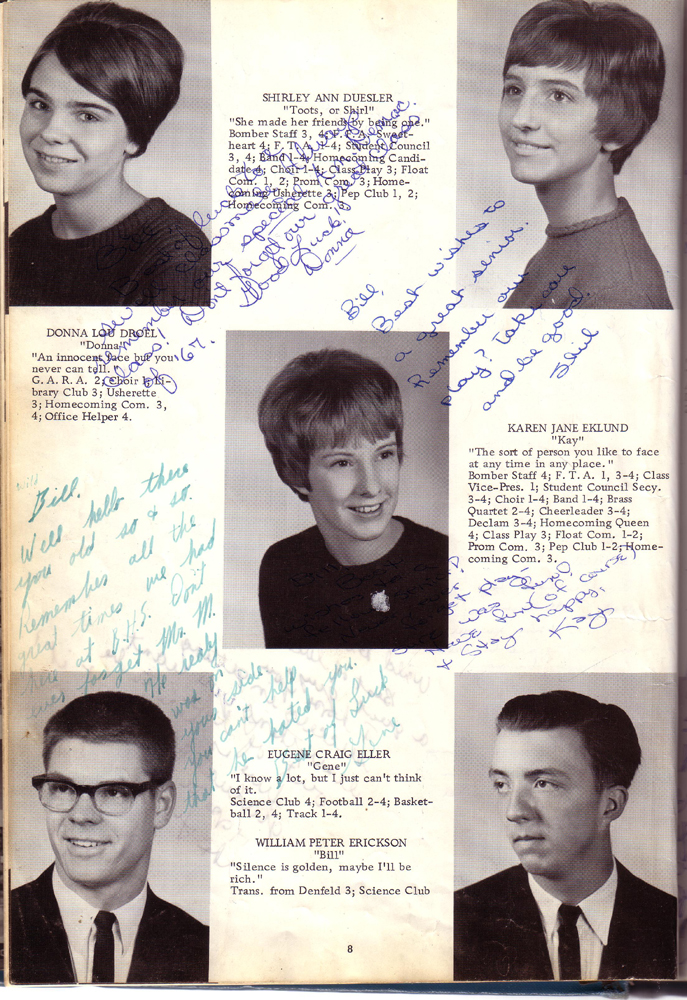 SHIRLEY ANN DUESLER
"Toots, or Shirl"
"She made her friends by being one."
Bomber Staff 3, 4; F. T. A. Sweet-
heart 4; F. T. A. 1-4; Student Council
3, 4; Band 1-4; Homecoming Candi-
date 4; Choir 1-4; Class Play 3; Float
Com. 1, 2; Prom Com. 3; Home-
coming Usherette 3; Pep Club 1, 2;
Homecoming Com. 3.
Remember our special
Don't forget our great class
of '67. Good Luck,
Donna
Bill,
Best wishes to
a great senior.
Remember our
play? Take care
and be good.
Shirl
DONNA LOU DROEL
"Donna"
"An innocent face but you
never can tell."
G. A. R. A. 2; Choir 1; Li-
brary Club 3; Usherette
3; Homecoming Com. 3,
4; Office Helper 4.
KAREN JANE EKLUND
"Kay"
"The sort of person you like to face
at any time in any place."
Bomber Staff 4; F. T. A. 1, 3-4; Class
Vice-Pres. 1; Student Council Secy.
3-4; Choir 1-4; Band 1-4; Brass
Quartet 2-4; Cheerleader 3-4;
Declam 3-4; Homecoming Queen
4; Class Play 3; Float Com. 1-2;
Prom Com. 3; Pep Club 1-2; Home-
coming Com. 3.
play
was fun!
fun of course!
& Stay happy,
Kay
wild
Bill,
Well hello there
you old so & so.
Remember all the
great times we had
here at B.H.S. Don't
ever forget Mr. M.
He really
was on
your side
you can't help
that he hated you.
Best of Luck
Gene
EUGENE CRAIG ELLER
"Gene"
"I know a lot, but I just can't think
of it.
Science Club 4; Football 2-4; Basket-
ball 2, 4; Track 1-4.
WILLIAM PETER ERICKSON
"Bill"
"Silence is golden, maybe I'll be
rich."
Trans. from Denfeld 3; Science Club
8